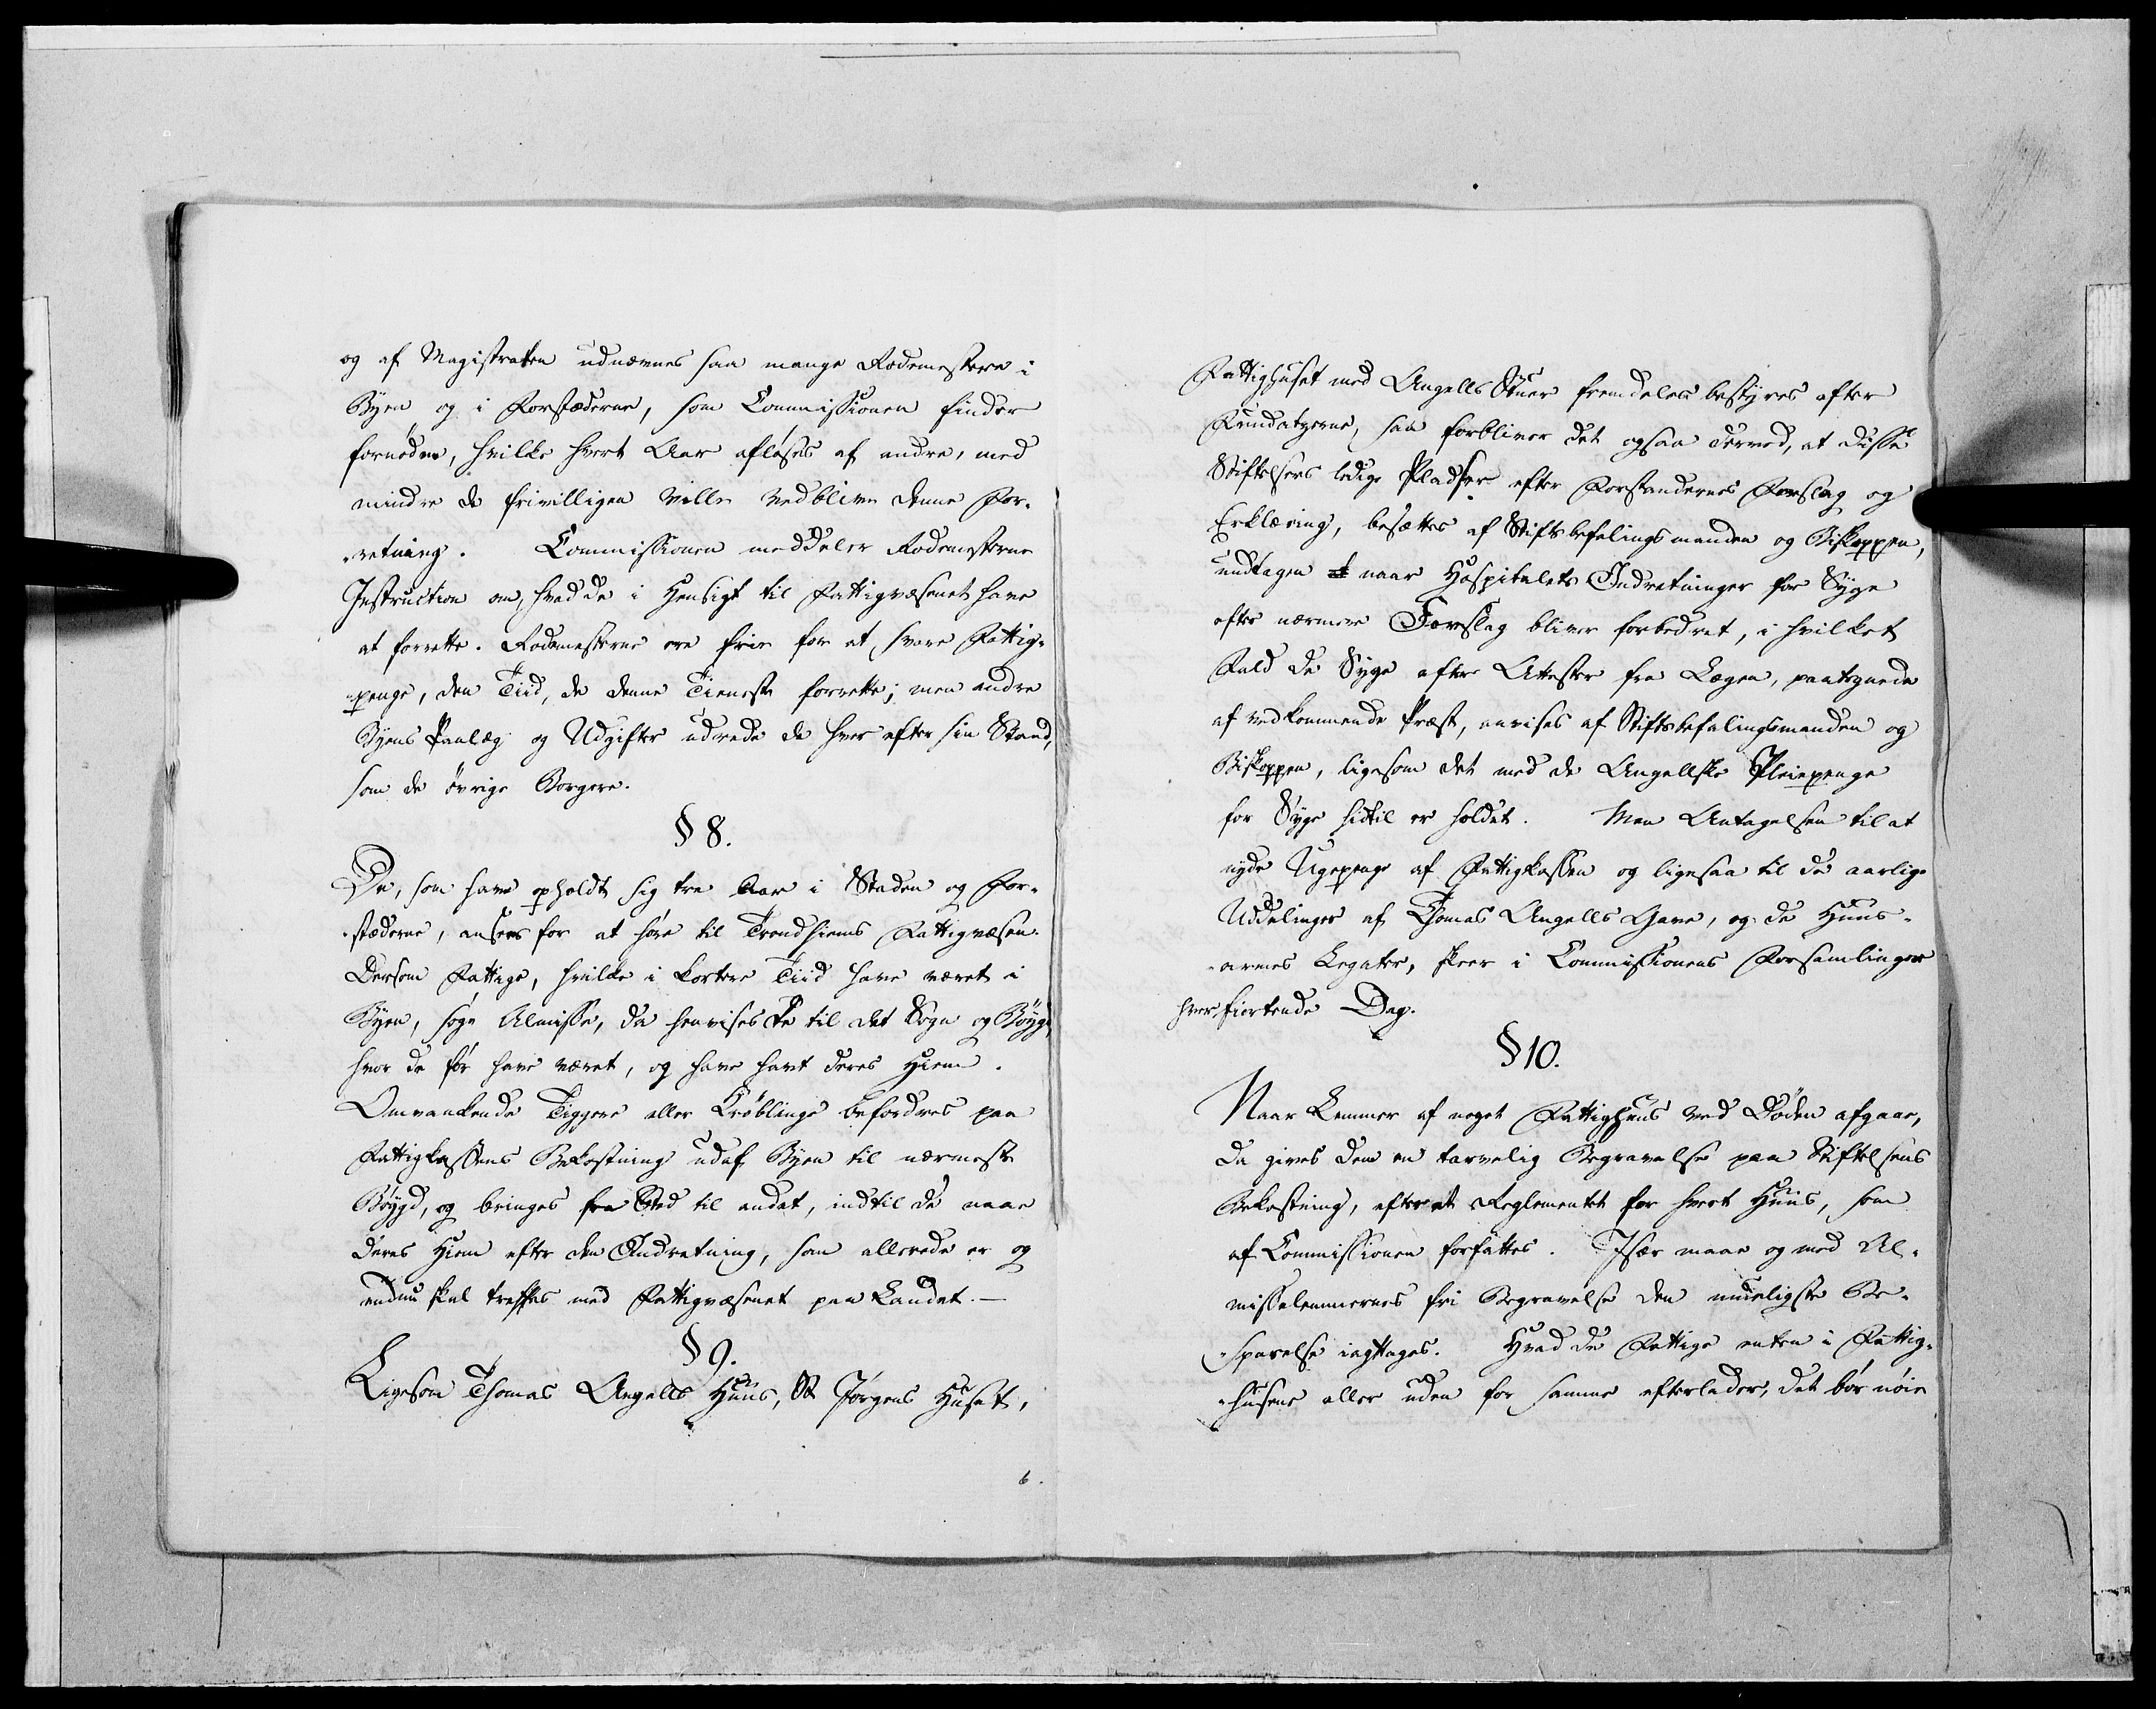 og af Magistraten udnævnes saa mange Rodemestere i
Byen og i Forstæderne, som Commissionen finder
fornøden, hvilke hvert Aar afløses af andre, med
mindre de frivilligen ville vedblive denne For-
-retning. Commissionen meddeler Rodemesterne
Instruction om, hvad de i Hensigt til Fattigvæsenet have
at forrette. Rodemesterne ere frie for at svare Fattig-
-penge, den Tiid, de denne Tieneste forrette; men andre
Byens Paalæg og Udgifter udrede de hver efter sin Stand,
som de øvrige Borgere.
§ 8.
De, som have opholdt sig tre Aar i Staden og For-
-stæderne, ansees for at høre til Trondhiems Fattigvæsen.
Dersom Fattige, hvilke i kortere Tiid have været i
Byen, søge Almisse, da henvises de til det Sogn og Bøygd,
hvor de før have været, og have havt deres Hiem.
Omvankende Tiggere eller Krøblinge befordres paa
Fattigkassens Bekostning udaf Byen til nærmeste
Bøygd, og bringes fra Sted til andet, indtil de naae
deres Hiem efter den Indretning, som allerede er og
endnu skal treffes med Fattigvæsenet paa Landet. —
§ 9.
Ligesom Thomas Angells Huus, St Jørgens Huset,
6.
Fattighuset med Angells Stuer fremdeles bestyres efter
Fundatzerne, saa forbliver det ogsaa derved, at disse
Stiftelsers ledige Pladser efter Forstandernes Forslag og
Erklæring, besættes af Stiftsbefalingsmanden og Biskoppen,
undtagen naar Hospitalets Indretninger for Syge
efter nærmere Forslag bliver forbedret, i hvilket
Fald de Syge efter Attester fra Lægen, paategnede
af vedkommende Præst, anvises af Stiftsbefalingsmanden og
Biskoppen, ligesom det med de Angellske Pleiepenge
for Syge hidtil er holdet. Men Antagelsen til at
nyde Ugepenge af Fattigkassen og ligesaa til de aarlige
Uddelinger af Thomas Angells Gave, og de Huus-
-armes Legater, skeer i Commissionens Forsamlinger
hver fiortende Dag.
§ 10.
Naar Lemmer af noget Fattighuus ved Døden afgaae,
da gives dem en tarvelig Begravelse paa Stiftelsens
Bekostning, efter at Reglementet for hvert Huus, som
af Commissionen forfattes. Især maae og med Al-
missalemmernes fri Begravelse den mueligste Be-
-sparelse iagttages. Hvad de Fattige enten i Fattig-
-husene eller uden for samme efterlader, det bør nøie